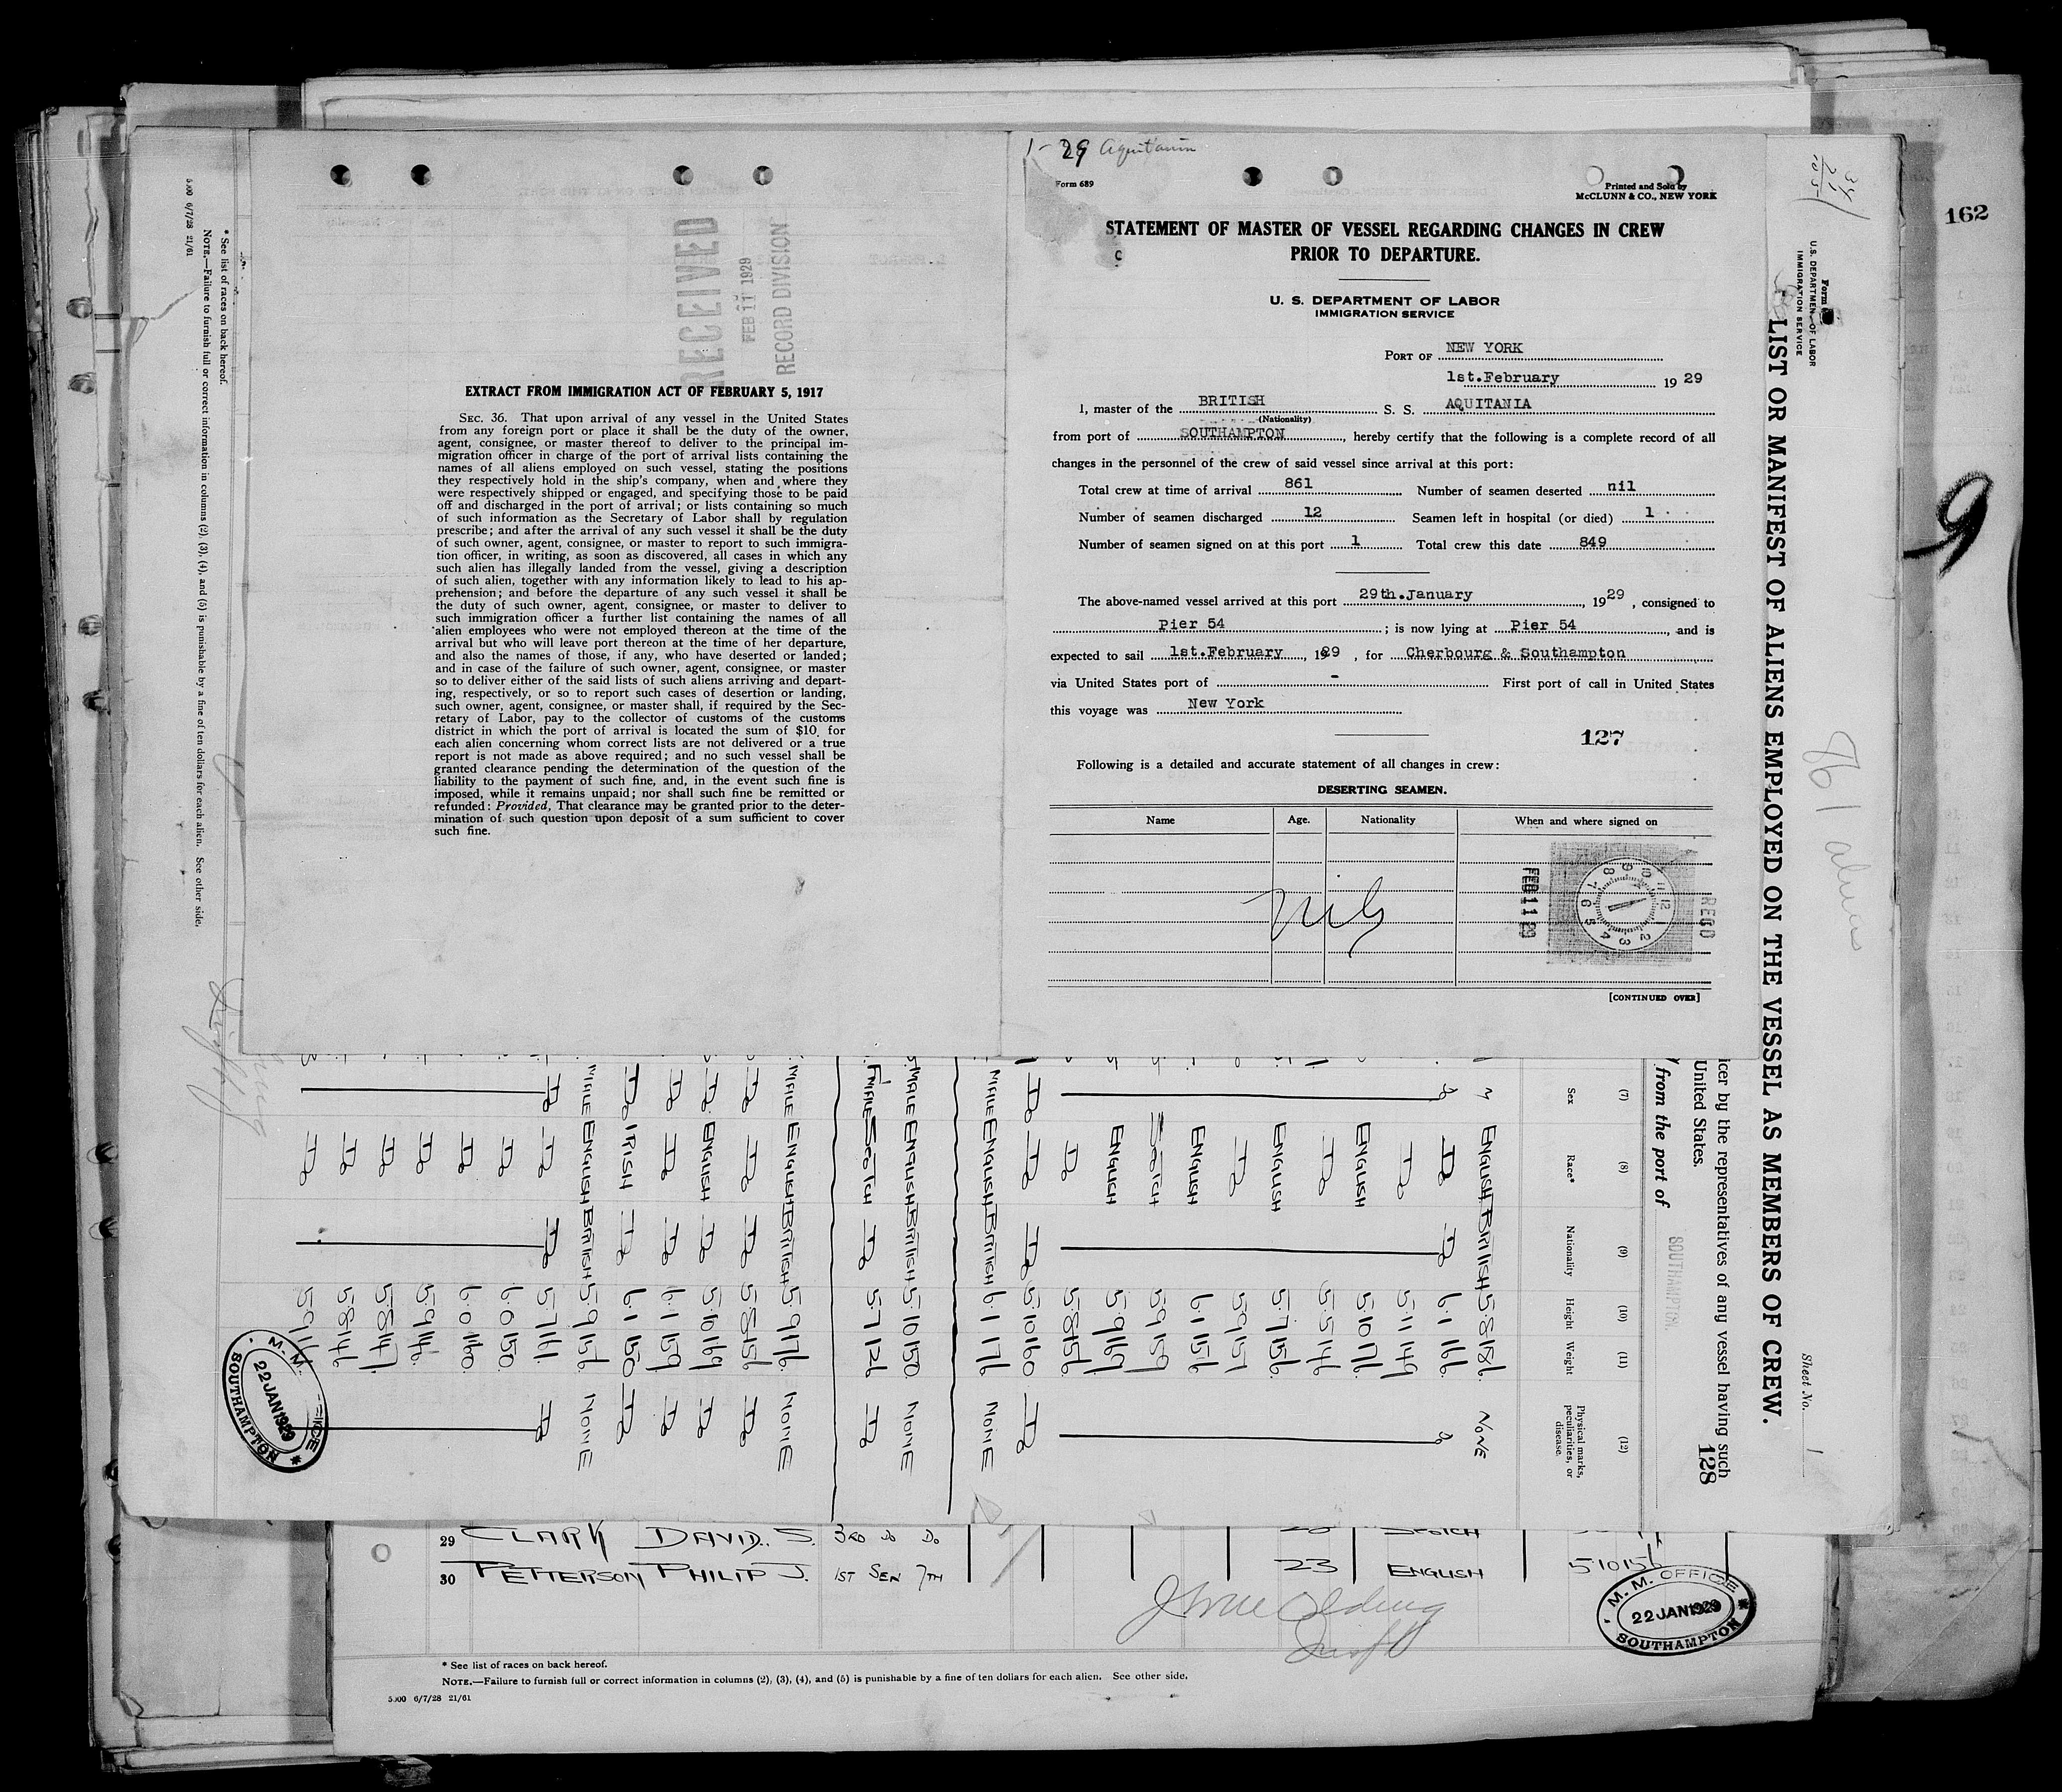 1-29 Aquitania
Form 689
Printed and Sold by
McCLUNN & CO., NEW YORK
STATEMENT OF MASTER OF VESSEL REGARDING CHANGES IN CREW
PRIOR TO DEPARTURE.
C
U. S. DEPARTMENT OF LABOR
IMMIGRATION SERVICE
PORT OF NEW YORK
1st.February 19 29
I, master of the BRITISH S. S. AQUITANIA
(Nationality)
from port of SOUTHAMPTON, hereby certify that the following is a complete record of all
changes in the personnel of the crew of said vessel since arrival at this port:
Total crew at time of arrival 861 Number of seamen deserted nil
Number of seamen discharged 12 Seamen left in hospital (or died) 1
Number of seamen signed on at this port 1 Total crew this date 849
The above-named vessel arrived at this port 29th.January, 19 29, consigned to
Pier 54; is now lying at Pier 54, and is
expected to sail 1st.February, 1929, for Cherbourg & Southampton
via United States port of - First port of call in United States
this voyage was New York
127
Following is a detailed and accurate statement of all changes in crew:
DESERTING SEAMEN.
Name Age. Nationality When and where signed on
nil
FEB 11 29
REC'D
[CONTINUED OVER]
RECEIVED
FEB 11 1929
RECORD DIVISION
EXTRACT FROM IMMIGRATION ACT OF FEBRUARY 5, 1917
SEC. 36. That upon arrival of any vessel in the United States
from any foreign port or place it shall be the duty of the owner,
agent, consignee, or master thereof to deliver to the principal im-
migration officer in charge of the port of arrival lists containing the
names of all aliens employed on such vessel, stating the positions
they respectively hold in the ship's company, when and where they
were respectively shipped or engaged, and specifying those to be paid
off and discharged in the port of arrival; or lists containing so much
of such information as the Secretary of Labor shall by regulation
prescribe; and after the arrival of any such vessel it shall be the duty
of such owner, agent, consignee, or master to report to such immigra-
tion officer, in writing, as soon as discovered, all cases in which any
such alien has illegally landed from the vessel, giving a description
of such alien, together with any information likely to lead to his ap-
prehension; and before the departure of any such vessel it shall be
the duty of such owner, agent, consignee, or master to deliver to
such immigration officer a further list containing the names of all
alien employees who were not employed thereon at the time of the
arrival but who will leave port thereon at the time of her departure,
and also the names of those, if any, who have deserted or landed;
and in case of the failure of such owner, agent, consignee, or master
so to deliver either of the said lists of such aliens arriving and depart-
ing, respectively, or so to report such cases of desertion or landing,
such owner, agent, consignee, or master shall, if required by the Sec-
retary of Labor, pay to the collector of customs of the customs
district in which the port of arrival is located the sum of $10 for
each alien concerning whom correct lists are not delivered or a true
report is not made as above required; and no such vessel shall be
granted clearance pending the determination of the question of the
liability to the payment of such fine, and, in the event such fine is
imposed, while it remains unpaid; nor shall such fine be remitted or
refunded: Provided, That clearance may be granted prior to the deter-
mination of such question upon deposit of a sum sufficient to cover
such fine.
162
9
861 aliens
U. S. DEPARTMENT OF LABOR
IMMIGRATION SERVICE
LIST OR MANIFEST OF ALIENS EMPLOYED ON THE VESSEL AS MEMBERS OF CREW.
Sheet No. 1
icer by the representatives of any vessel having such
United States.
128
from the port of SOUTHAMPTON.
(7) (8) (9) (10) (11) (12)
Sex Race* Nationality Height Weight Physical marks, peculiarities, or disease.
ENGLISH BRITISH 5.8 186 NONE
Do Do Do 6.1 166 Do
Do 5.11 149
ENGLISH 5.10 176
Do 5.5 146
ENGLISH 5.7 156
Do 5.9 151
ENGLISH 6.1 156
SCOTCH 5.9 159
ENGLISH 5.9 169
Do 5.8 156
Do Do Do 5.10 160 Do
MALE ENGLISH BRITISH 6.1 176 NONE
MALE ENGLISH BRITISH 5.10 150 NONE
F'MALE SCOTCH Do 5.7 126 Do
MALE ENGLISH BRITISH 5.9 176 NONE
Do Do Do 5.8 156 Do
Do ENGLISH Do 5.10 169 Do
Do Do Do 6.1 159 Do
Do IRISH Do 6.1 150 Do
MALE ENGLISH BRITISH 5.9 156 NONE
Do Do Do 5.7 161 Do
Do 6.0 150
Do 6.0 160
Do 5.9 146
Do 5.8 147
Do 5.8 146
Do
M. M. OFFICE
22 JAN 1929
SOUTHAMPTON
* See list of races on back hereof.
NOTE.—Failure to furnish full or correct information in columns (2), (3), (4), and (5) is punishable by a fine of ten dollars for each alien. See other side.
5300 6/7/28 21/61
29 CLARK DAVID. S. 3RD Do Do SCOTCH
30 PETTERSON PHILIP J. 1ST SEN 7TH 23 ENGLISH 5.10 156
M. M. OFFICE
22 JAN 1929
SOUTHAMPTON
* See list of races on back hereof.
NOTE.—Failure to furnish full or correct information in columns (2), (3), (4), and (5) is punishable by a fine of ten dollars for each alien. See other side.
5300 6/7/28 21/61